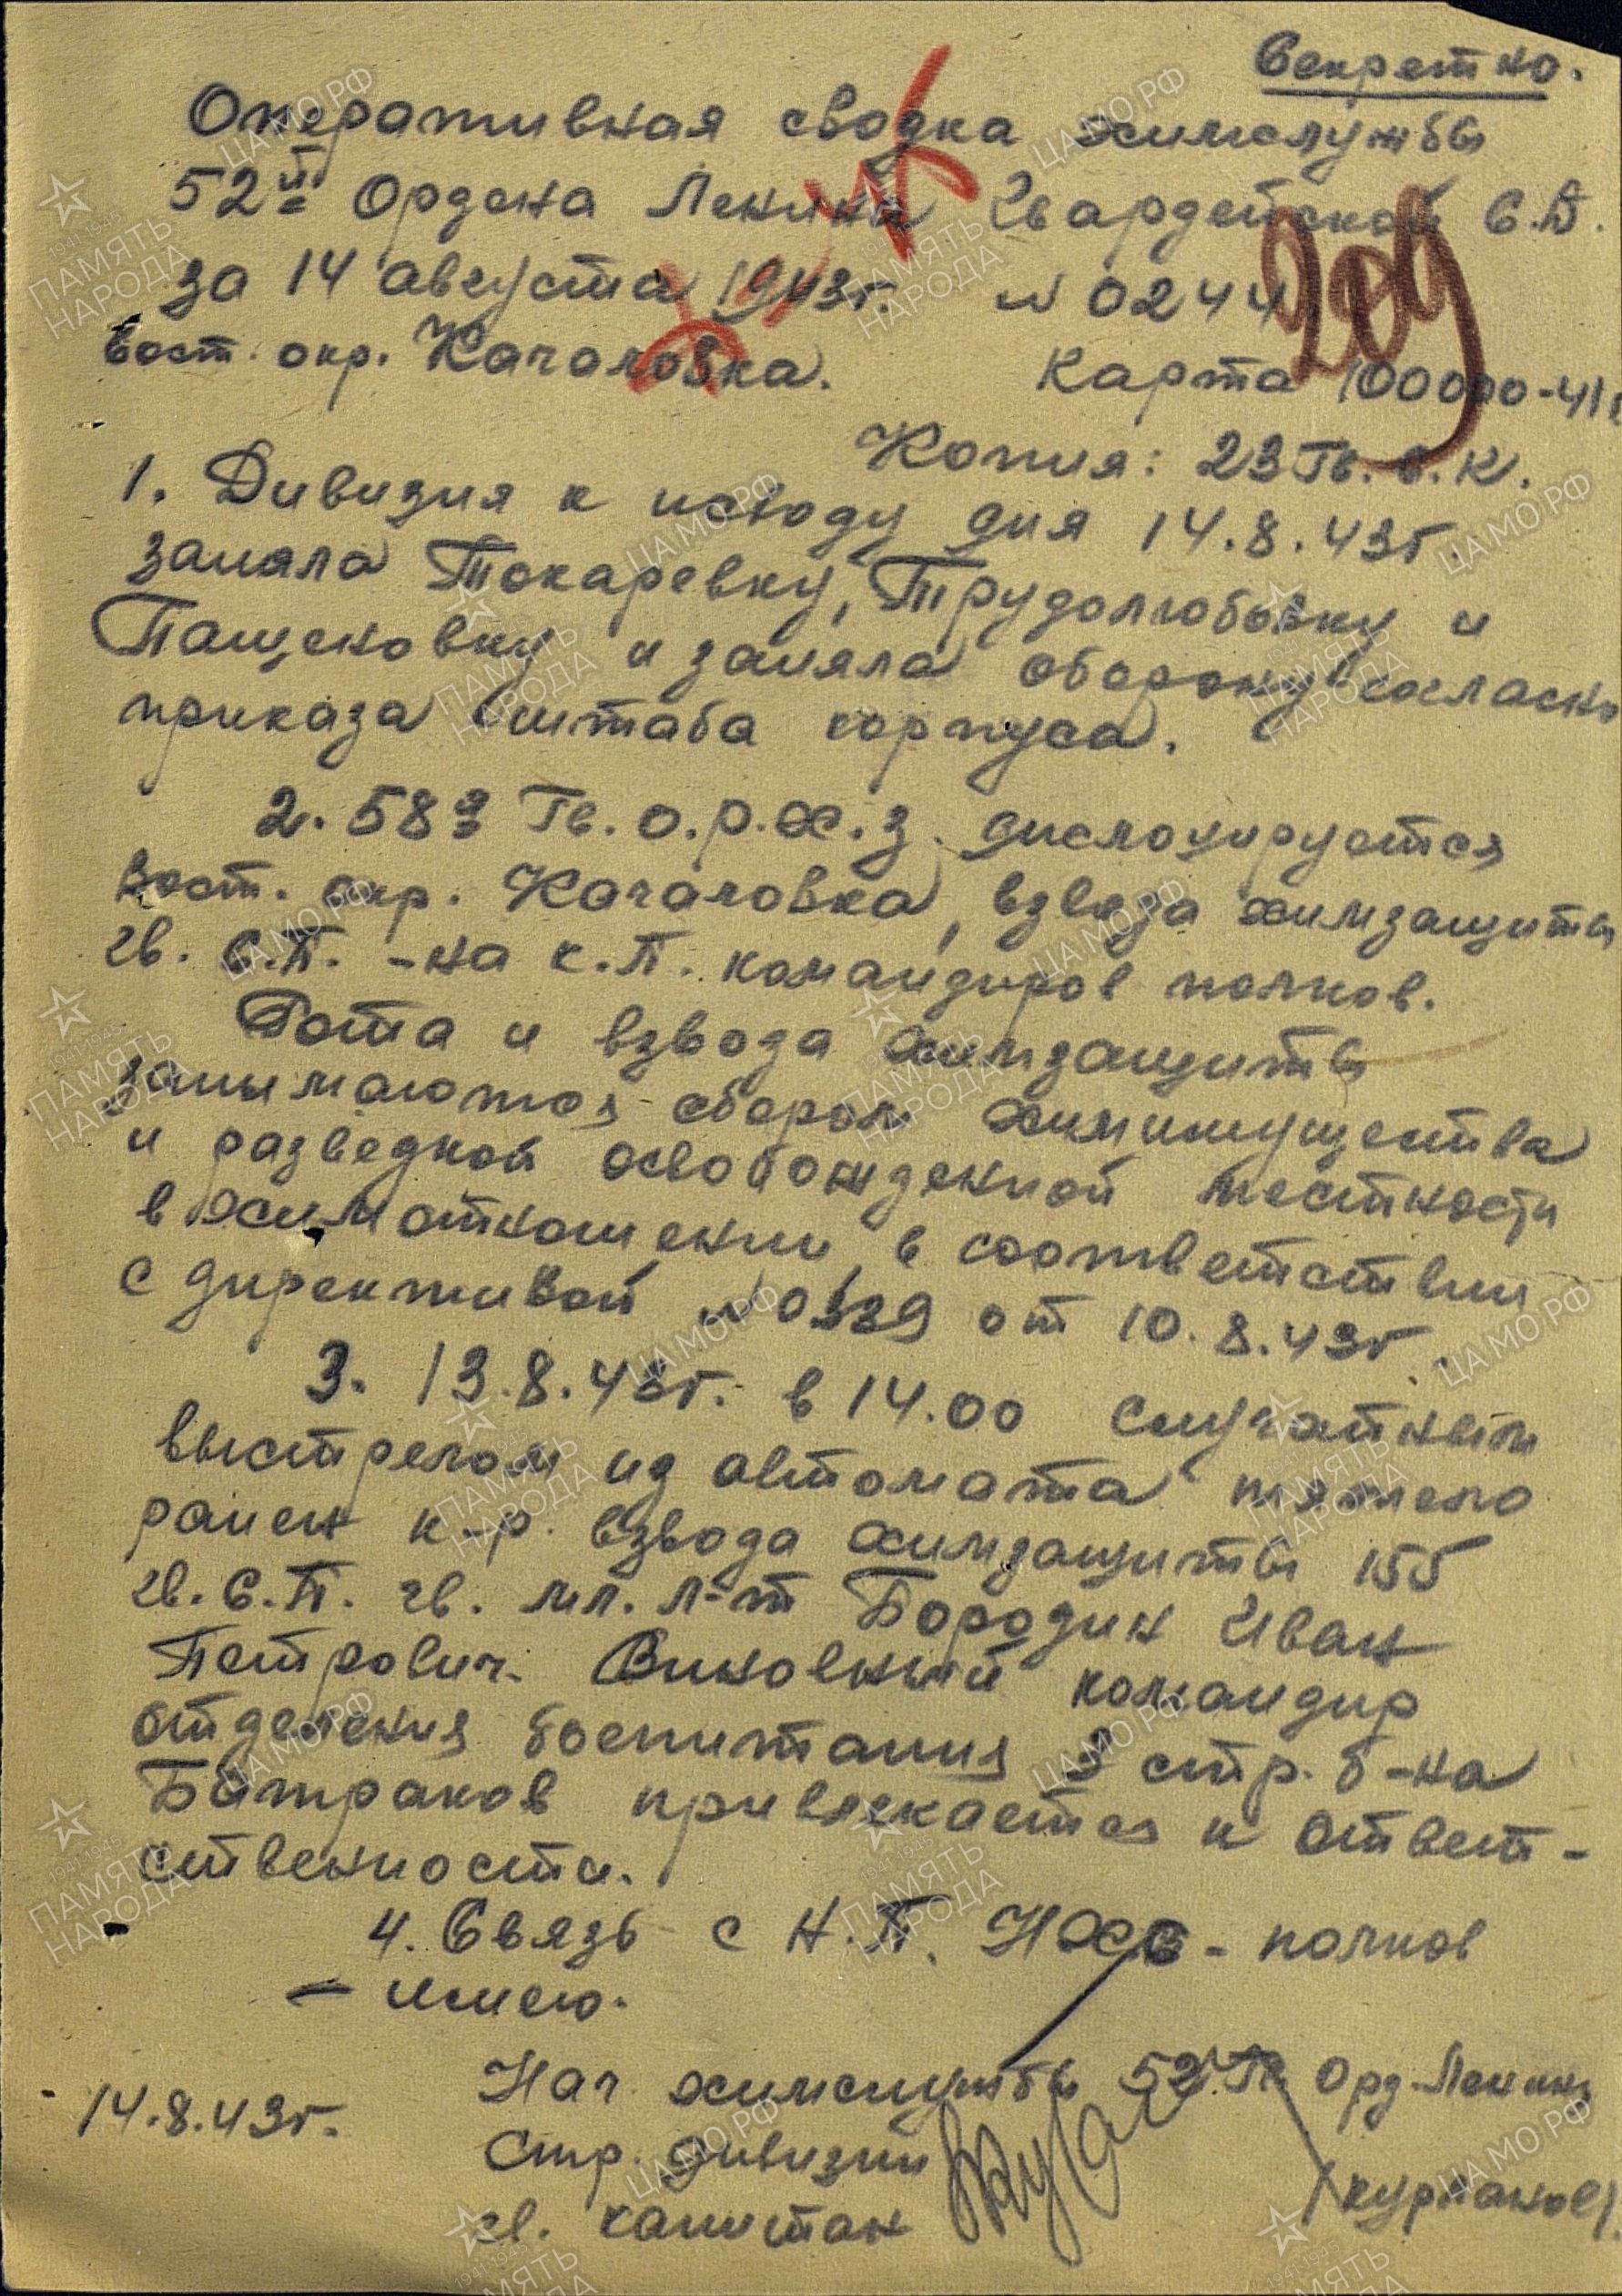 Секретно.
Оперативная сводка химслужбы
52й Ордена Ленина Гвардейской С.Д.
за 14 августа 1943г. № 0244
209
вост. окр. Качаловка. Карта 100000-41г
Копия: 23 Гв. С.К.
1. Дивизия к исходу дня 14.8.43г.
заняла Токаревку, Трудолюбовку и
Пащековку и заняла оборону согласно
приказа штаба корпуса.
2. 583 Гв. о.р.х.з. дислоцируется
вост. окр. Качаловка, взвода химзащиты
гв. С.П. - на К.П. командиров полков.
Рота и взвода химзащиты
занимаются сбором химимущества
и разведкой освобожденной местности
в химотношении, в соответствии
с директивой № 0339 от 10.8.43г.
3. 13.8.43г. в 14.00 случайным
выстрелом из автомата тяжело
ранен к-р. взвода химзащиты 155
гв. С.П. гв. мл. л-т Бородин Иван
Петрович. Виновный командир
отделения боепитания 3 стр. б-на
Батраков привлекается к ответ-
ственности.
4. Связь с Н.П. НХС - полков
- имею.
Нач. химслужбы 52 Гв. Орд. Ленина
14.8.43г.
Стр. дивизии
гв. капитан /Курпаков/
ЦА МО РФ
1941-1945
ПАМЯТЬ
НАРОДА